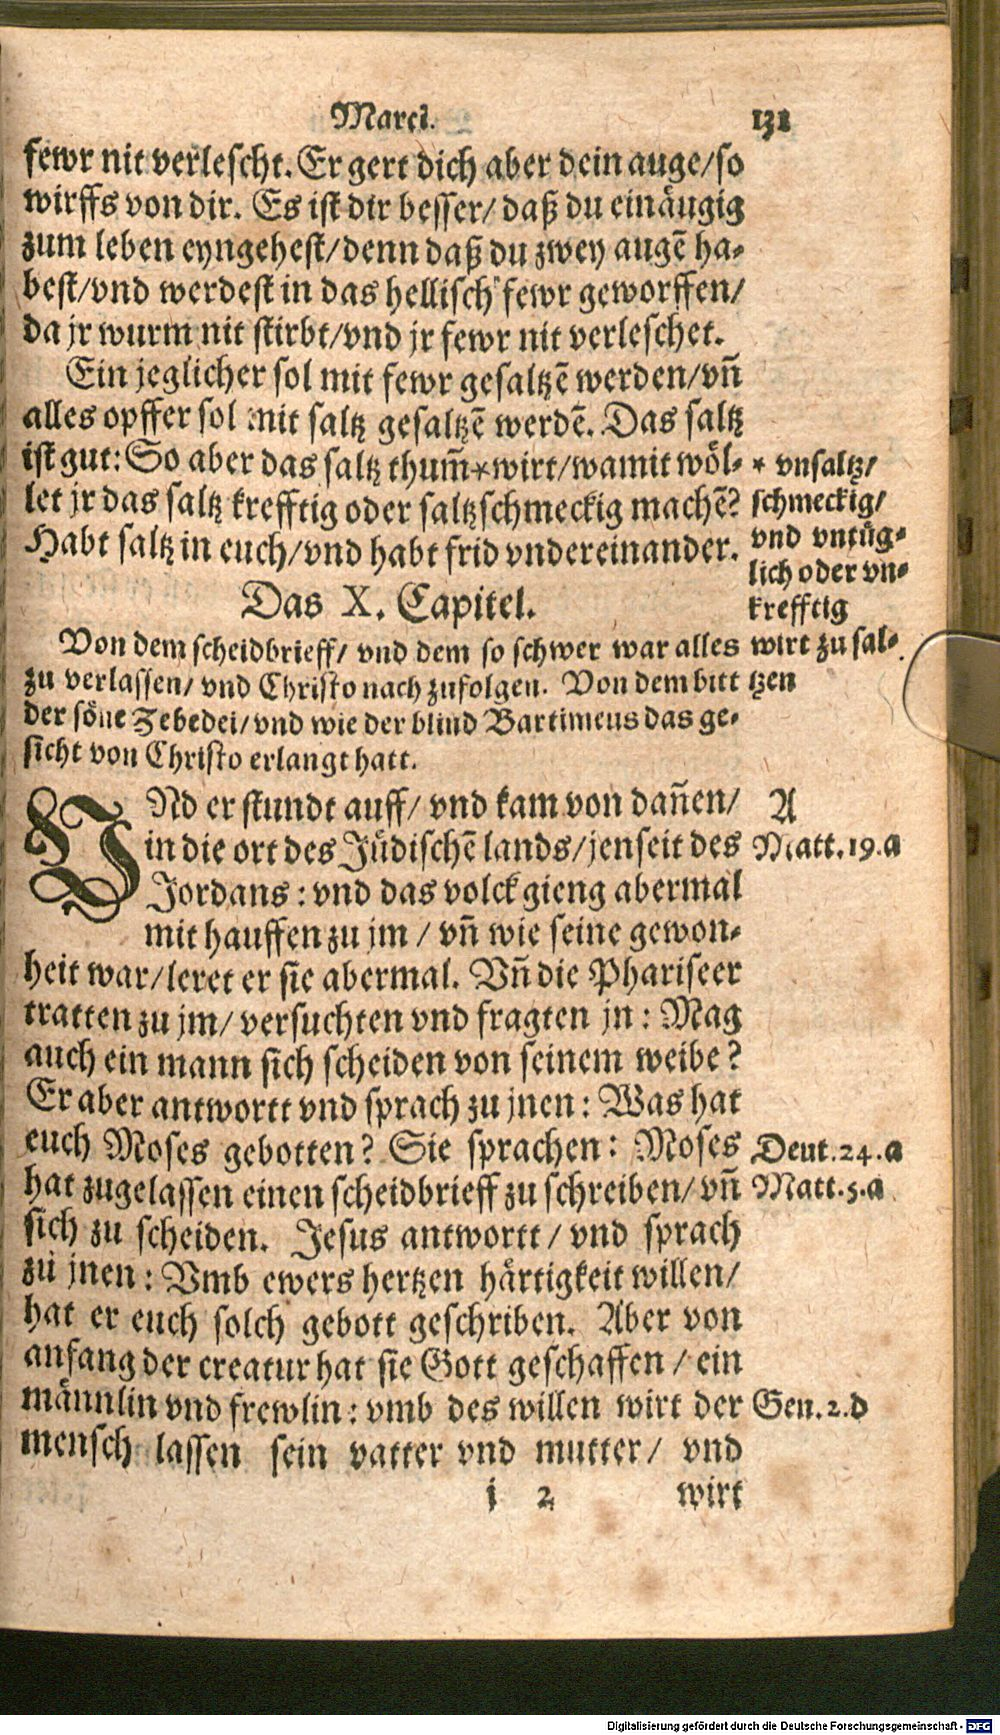 Marci.
131
fewr nit verlescht. Er gert dich aber dein auge/ so
wirffs von dir. Es ist dir besser/ daß du einäugig
zum leben eyngehest/ denn daß du zwey augẽ ha-
best/ vnd werdest in das hellisch fewr geworffen/
da jr wurm nit stirbt/ vnd jr fewr nit verleschet.
Ein jeglicher sol mit fewr gesaltzẽ werden/ vñ
alles opffer sol mit saltz gesaltzẽ werdẽ. Das saltz
ist gut: So aber das saltz thum̃ * wirt/ wamit wöl-
let jr das saltz krefftig oder saltzschmeckig machẽ?
Habt saltz in euch/ vnd habt frid vndereinander.
* vnsaltz/
schmeckig/
vnd vntüg-
lich oder vn-
krefftig
wirt zu sal-
tzen
Das X. Capitel.
Von dem scheidbrieff/ vnd dem so schwer war alles
zu verlassen/ vnd Christo nach zufolgen. Von dem bitt
der söne Zebedei/ vnd wie der blind Bartimeus das ge-
sicht von Christo erlangt hatt.
VNd er stundt auff/ vnd kam von dañen/
in die ort des Jüdischẽ lands/ jenseit des
Jordans: vnd das volck gieng abermal
mit hauffen zu jm/ vñ wie seine gewon-
heit war/ leret er sie abermal. Vñ die Phariseer
tratten zu jm/ versuchten vnd fragten jn: Mag
auch ein mann sich scheiden von seinem weibe?
Er aber antwortt vnd sprach zu jnen: Was hat
euch Moses gebotten? Sie sprachen: Moses
hat zugelassen einen scheidbrieff zu schreiben/ vñ
sich zu scheiden. Jesus antwortt/ vnd sprach
zů jnen: Vmb ewers hertzen härtigkeit willen/
hat er euch solch gebott geschriben. Aber von
anfang der creatur hat sie Gott geschaffen/ ein
männlin vnd frewlin: vmb des willen wirt der
mensch lassen sein vatter vnd mutter/ vnd
A
Matt. 19. a
Deut. 24. a
Matt. 5. a
Gen. 2. d
j 2
wirt
Digitalisierung gefördert durch die Deutsche Forschungsgemeinschaft - DFG